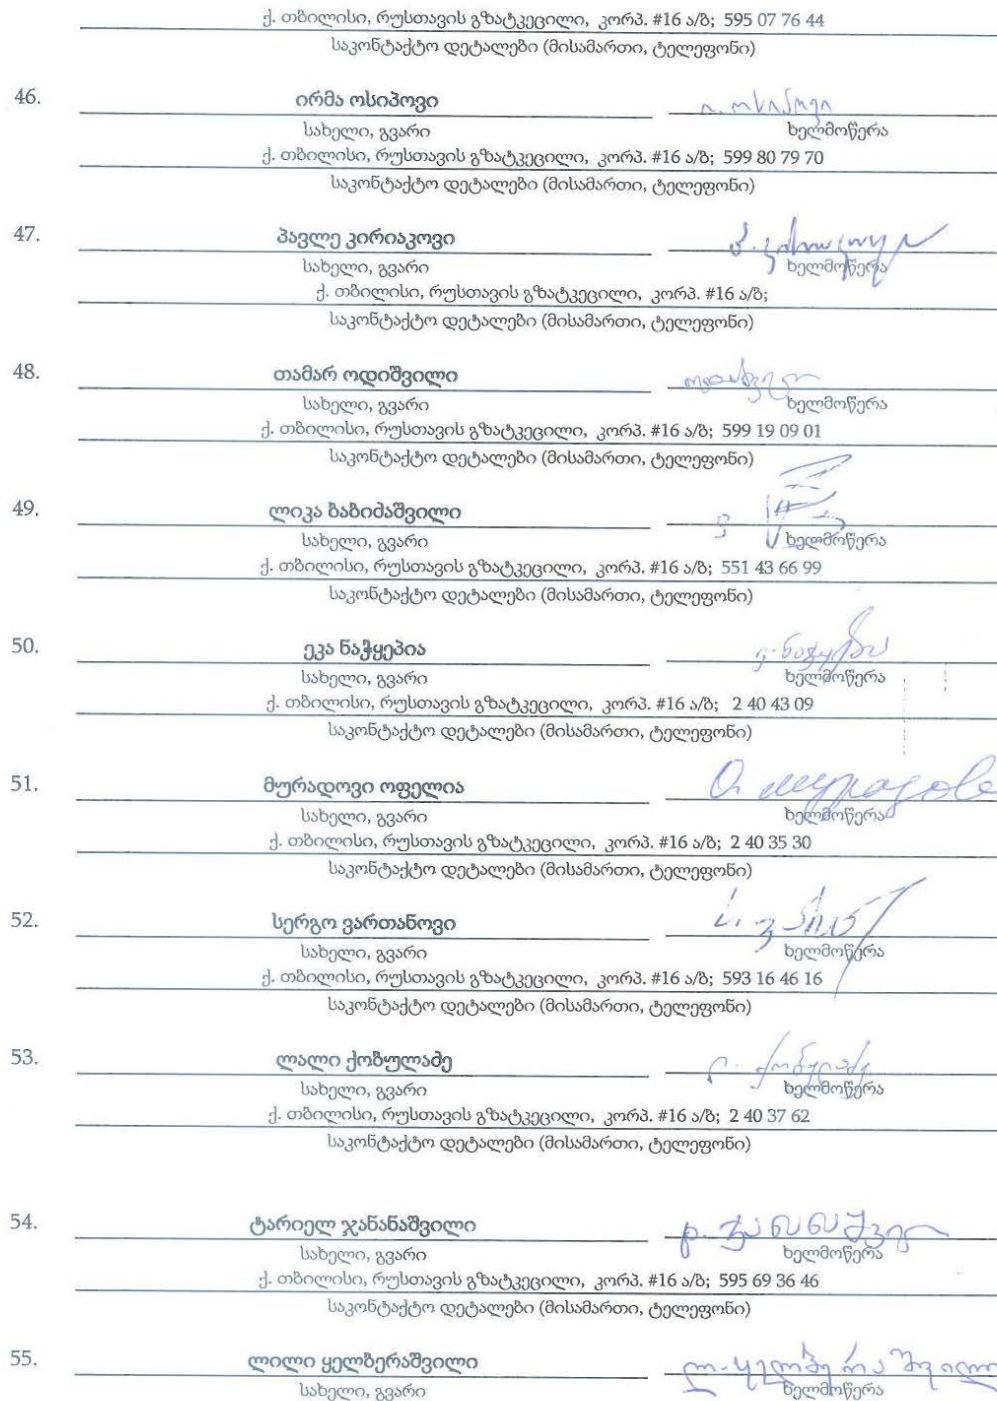 ქ. თბილისი, რუსთავის გზატკეცილი, კორპ. #16 ა/ბ; 595 07 76 44
საკონტაქტო დეტალები (მისამართი, ტელეფონი)
46. ირმა ოსიპოვი ი. ოსიპოვი
სახელი, გვარი ხელმოწერა
ქ. თბილისი, რუსთავის გზატკეცილი, კორპ. #16 ა/ბ; 599 80 79 70
საკონტაქტო დეტალები (მისამართი, ტელეფონი)
47. პავლე კირიაკოვი
სახელი, გვარი ხელმოწერა
ქ. თბილისი, რუსთავის გზატკეცილი, კორპ. #16 ა/ბ;
საკონტაქტო დეტალები (მისამართი, ტელეფონი)
48. თამარ ოდიშვილი
სახელი, გვარი ხელმოწერა
ქ. თბილისი, რუსთავის გზატკეცილი, კორპ. #16 ა/ბ; 599 19 09 01
საკონტაქტო დეტალები (მისამართი, ტელეფონი)
49. ლიკა ბაბიძაშვილი
სახელი, გვარი ხელმოწერა
ქ. თბილისი, რუსთავის გზატკეცილი, კორპ. #16 ა/ბ; 551 43 66 99
საკონტაქტო დეტალები (მისამართი, ტელეფონი)
50. ეკა ნაჭყეპია ე. ნაჭყეპია
სახელი, გვარი ხელმოწერა
ქ. თბილისი, რუსთავის გზატკეცილი, კორპ. #16 ა/ბ; 2 40 43 09
საკონტაქტო დეტალები (მისამართი, ტელეფონი)
51. მურადოვი ოფელია О. Мурадова
სახელი, გვარი ხელმოწერა
ქ. თბილისი, რუსთავის გზატკეცილი, კორპ. #16 ა/ბ; 2 40 35 30
საკონტაქტო დეტალები (მისამართი, ტელეფონი)
52. სერგო ვართანოვი
სახელი, გვარი ხელმოწერა
ქ. თბილისი, რუსთავის გზატკეცილი, კორპ. #16 ა/ბ; 593 16 46 16
საკონტაქტო დეტალები (მისამართი, ტელეფონი)
53. ლალი ქობულაძე ლ. ქობულაძე
სახელი, გვარი ხელმოწერა
ქ. თბილისი, რუსთავის გზატკეცილი, კორპ. #16 ა/ბ; 2 40 37 62
საკონტაქტო დეტალები (მისამართი, ტელეფონი)
54. ტარიელ ჯანანაშვილი
სახელი, გვარი ხელმოწერა
ქ. თბილისი, რუსთავის გზატკეცილი, კორპ. #16 ა/ბ; 595 69 36 46
საკონტაქტო დეტალები (მისამართი, ტელეფონი)
55. ლილი ყელბერაშვილი ლ. ყელბერაშვილი
სახელი, გვარი ხელმოწერა